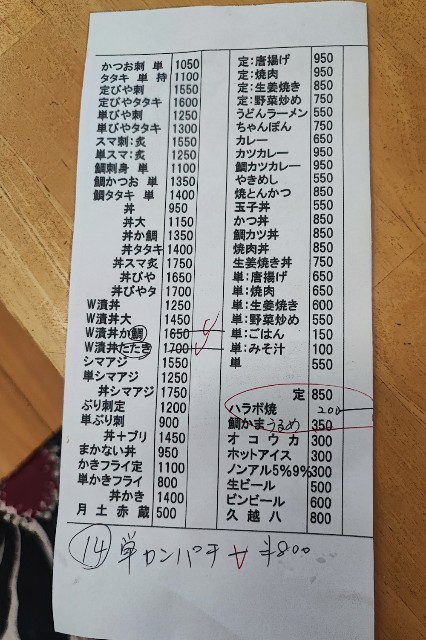 かつお刺 単 1050
タタキ 単 持 1100
定びや刺 1550
定びやタタキ 1600
単びや刺 1250
単びやタタキ 1300
スマ刺:炙 1550
単スマ:炙 1250
鯛刺身 単 1100
鯛かつお 単 1350
鯛タタキ 単 1400
丼 950
丼大 1150
丼か鯛 1350
丼タタキ 1400
丼スマ炙 1750
丼びや 1650
丼びやタ 1700
W漬丼 1250
W漬丼大 1450
W漬丼か鯛 1650
W漬丼たたき 1700
シマアジ 1550
単シマアジ 1250
丼シマアジ 1750
ぶり刺定 1200
単ぶり刺 900
丼+ブリ 1450
まかない丼 950
かきフライ定 1100
単かきフライ 800
丼かき 1400
月土赤蔵 500
定:唐揚げ 950
定:焼肉 950
定:生姜焼き 850
定:野菜炒め 750
うどんラーメン 550
ちゃんぽん 750
カレー 650
カツカレー 950
鯛カツカレー 950
やきめし 550
焼とんかつ 850
玉子丼 550
かつ丼 850
鯛カツ丼 850
焼肉丼 850
生姜焼き丼 750
単:唐揚げ 650
単:焼肉 650
単:生姜焼き 600
単:野菜炒め 550
単:ごはん 150
単:みそ汁 100
単 550
定 850
ハラボ焼 200
鯛かま うるめ 350
オコウカ 300
ホットアイス 300
ノンアル5%9% 300
生ビール 500
ビンビール 600
久越八 800
14 単カンパチ ¥800